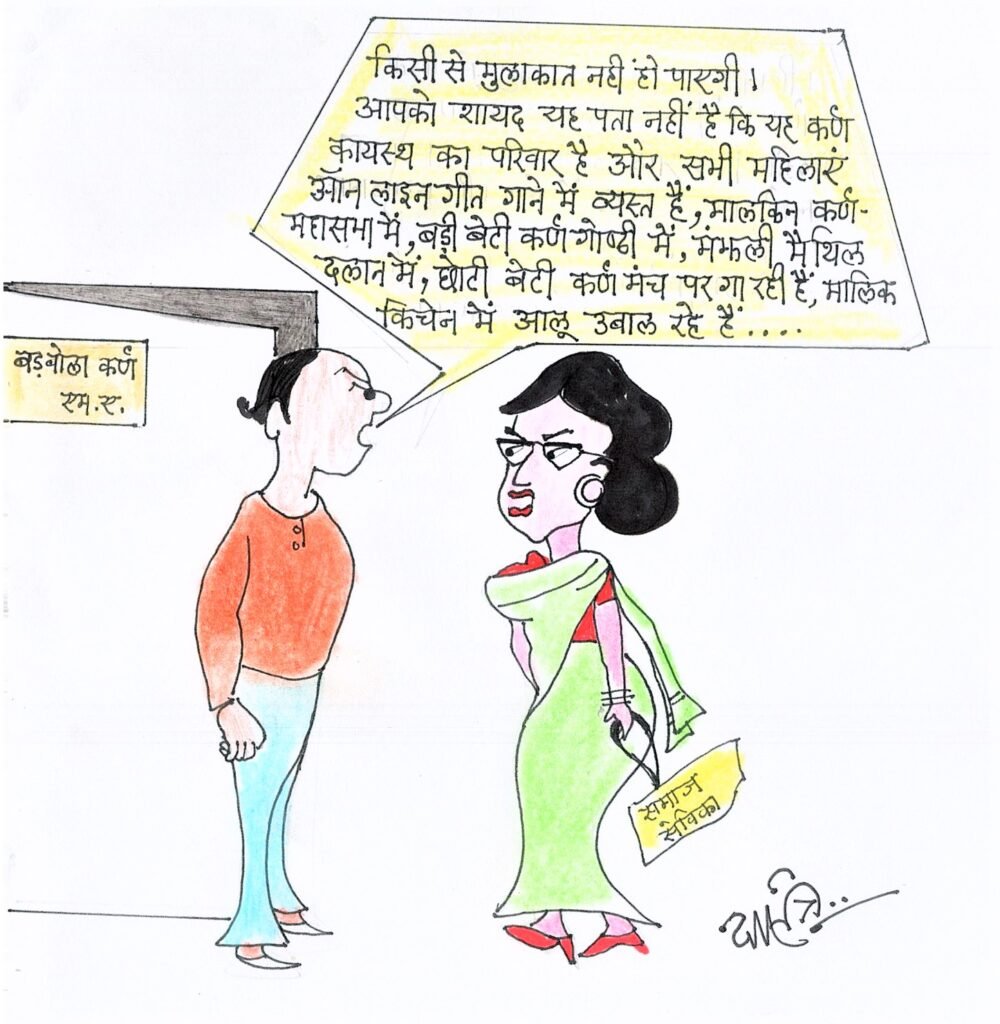 किसी से मुलाकात नहीं हो पाएगी।
आपको शायद यह पता नहीं है कि यह कर्ण
कायस्थ का परिवार है और सभी महिलाएं
ऑन लाइन गीत गाने में व्यस्त हैं, मालकिन कर्ण-
महासभा में, बड़ी बेटी कर्ण गोष्ठी में, मंझली मैथिल
दलान में, छोटी बेटी कर्ण मंच पर गा रही हैं, मालिक
किचेन में आलू उबाल रहे हैं....
बड़बोला कर्ण
एम.ए.
समाज
सेविका